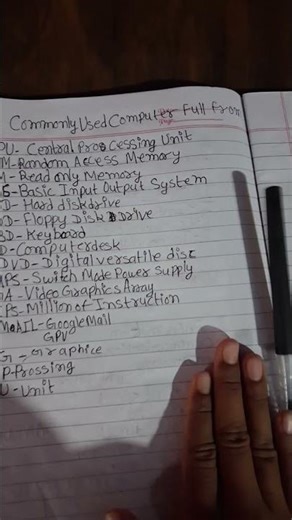 Commonly Used Computer Full from
PU- Central Processing Unit
M-Random Access Memory
M- Read only Memory
S-Basic Input Output System
D- Hard diskdrive
D- Floppy Disk Drive
BD- Keyboard
D-Computerdesk
DVD- Digital versatile disc
PS- Switch Mode Power Supply
GA- Video Graphics Array
IPS-Million of Instruction
MAIL-GoogleMall
GPU
G - Graphice
P-Prossing
U-Unit